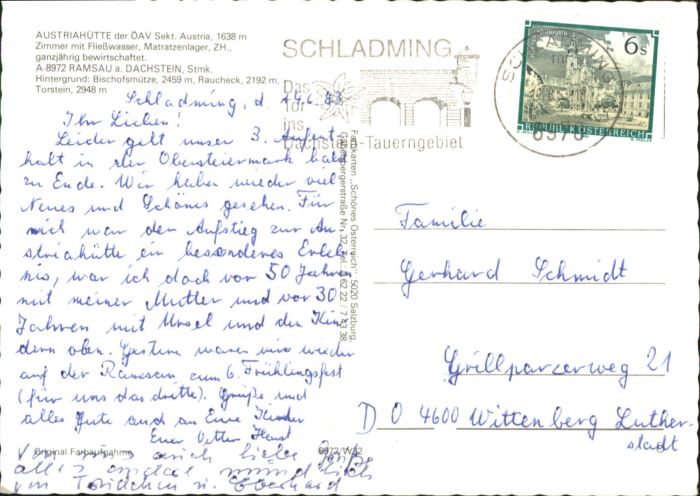 AUSTRIAHÜTTE der ÖAV Sekt. Austria, 1638 m
Zimmer mit Fließwasser, Matratzenlager, ZH.,
ganzjährig bewirtschaftet.
A-8972 RAMSAU a. DACHSTEIN, Stmk.
Hintergrund: Bischofsmütze, 2459 m, Raucheck, 2192 m,
Torstein, 2948 m
SCHLADMING
Das
Tor
ins
Dachstein-Tauerngebiet
SCHLADMING
8970
6 s
REPUBLIK ÖSTERREICH
Schladming, d. 14.6.93
Ihr Lieben!
Leider geht unser 3. Aufent-
halt in der Obersteiermark bald
zu Ende. Wir haben wieder viel
Neues und Schönes gesehen. Für
mich war der Aufstieg zur Au-
striahütte ein besonderes Erleb-
nis, war ich doch vor 50 Jahren
mit meiner Mutter und vor 30
Jahren mit Ursel und den Kin-
dern oben. Gestern waren wir wieder
auf der Ramsau zum 6. Frühlingsfest
(für uns das dritte). Grüße und
alles Gute auch an Eure Kinder
Euer Vetter Horst
auch liebe Grüße
alles
von u. Eberhard
Original Farbaufnahme
8972/W32
Farbkarten „Schönes Österreich" 5020 Salzburg,
Familie
Gerhard Schmidt
Grillparzerweg 21
D O 4600 Wittenberg Luther-
stadt